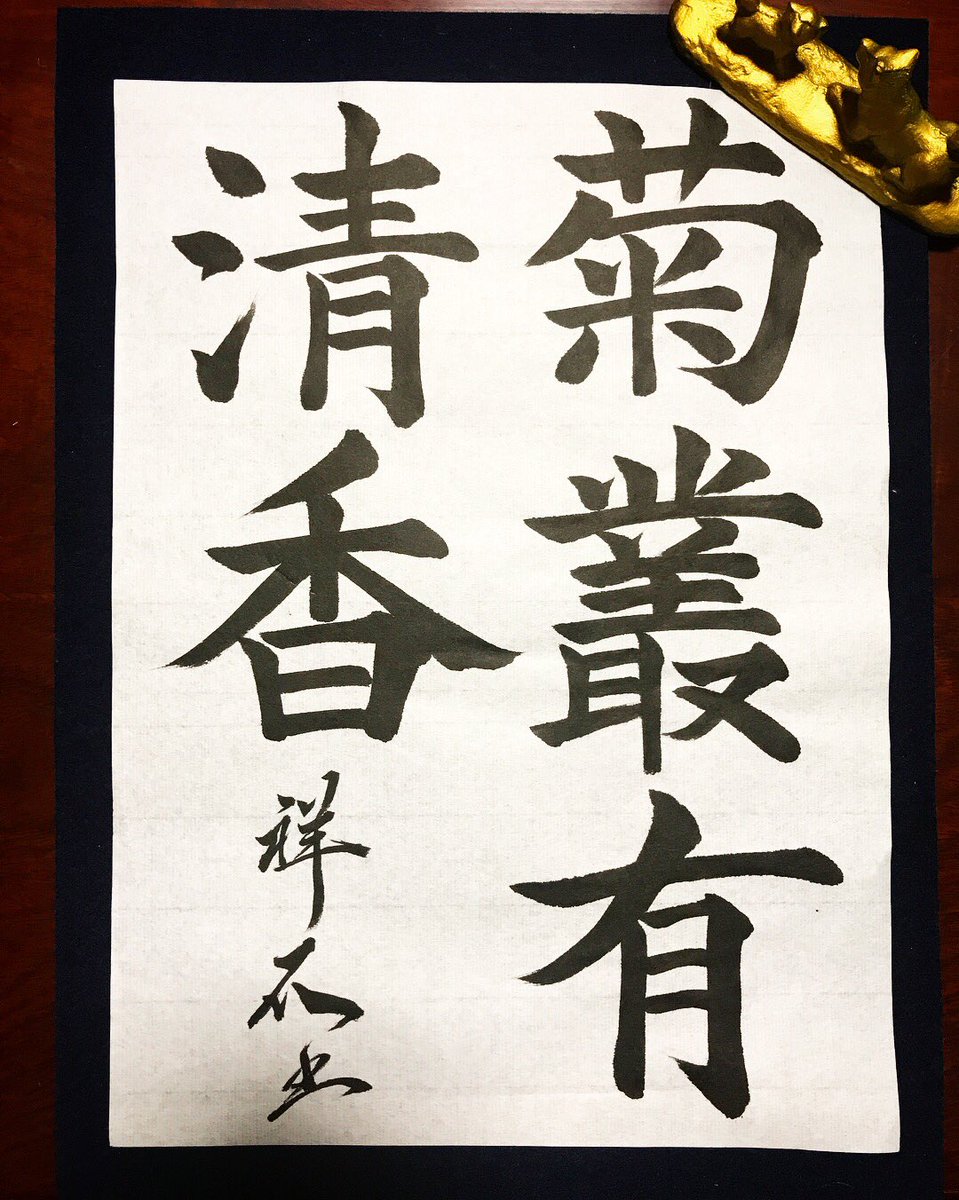 菊叢有
清香
祥石書